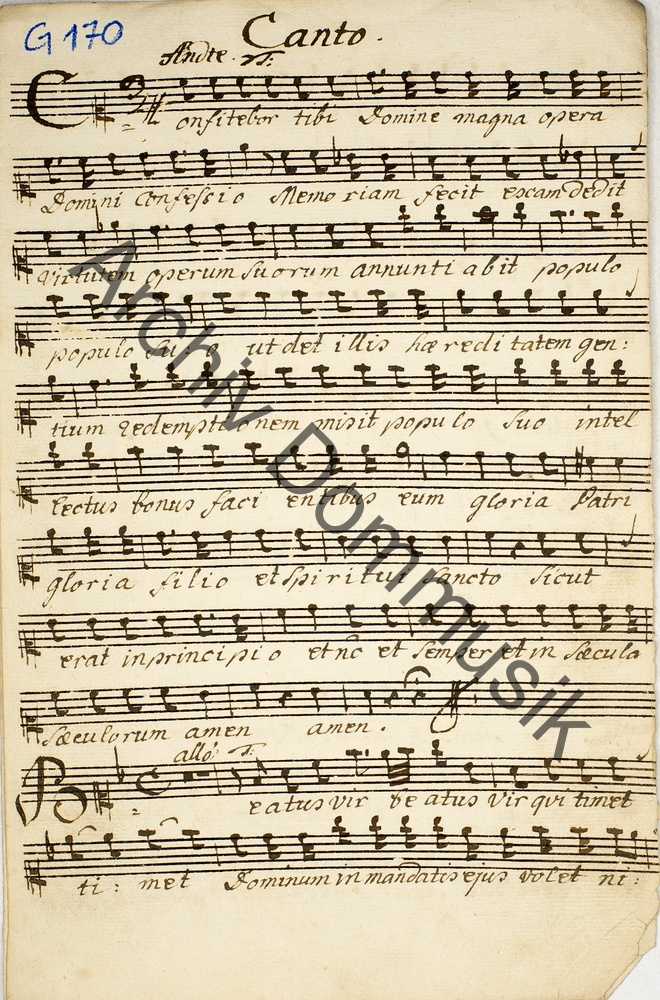 G 170
Canto.
Andte. T:
Confitebor tibi Domine magna opera
Domini Confessio Memoriam fecit escam dedit
virtutem operum suorum annuntiabit populo
populo su: o ut det illis hæreditatem gen:
tium Redemptionem misit populo suo intel
lectus bonus facientibus eum gloria Patri
gloria filio et Spiritui Sancto sicut
erat in principio et nc et semper et in sæcula
Sæculorum amen amen.
allo: T:
Beatus vir beatus vir qui timet
ti: met Dominum in mandatis ejus volet ni:
Archiv Dommusik